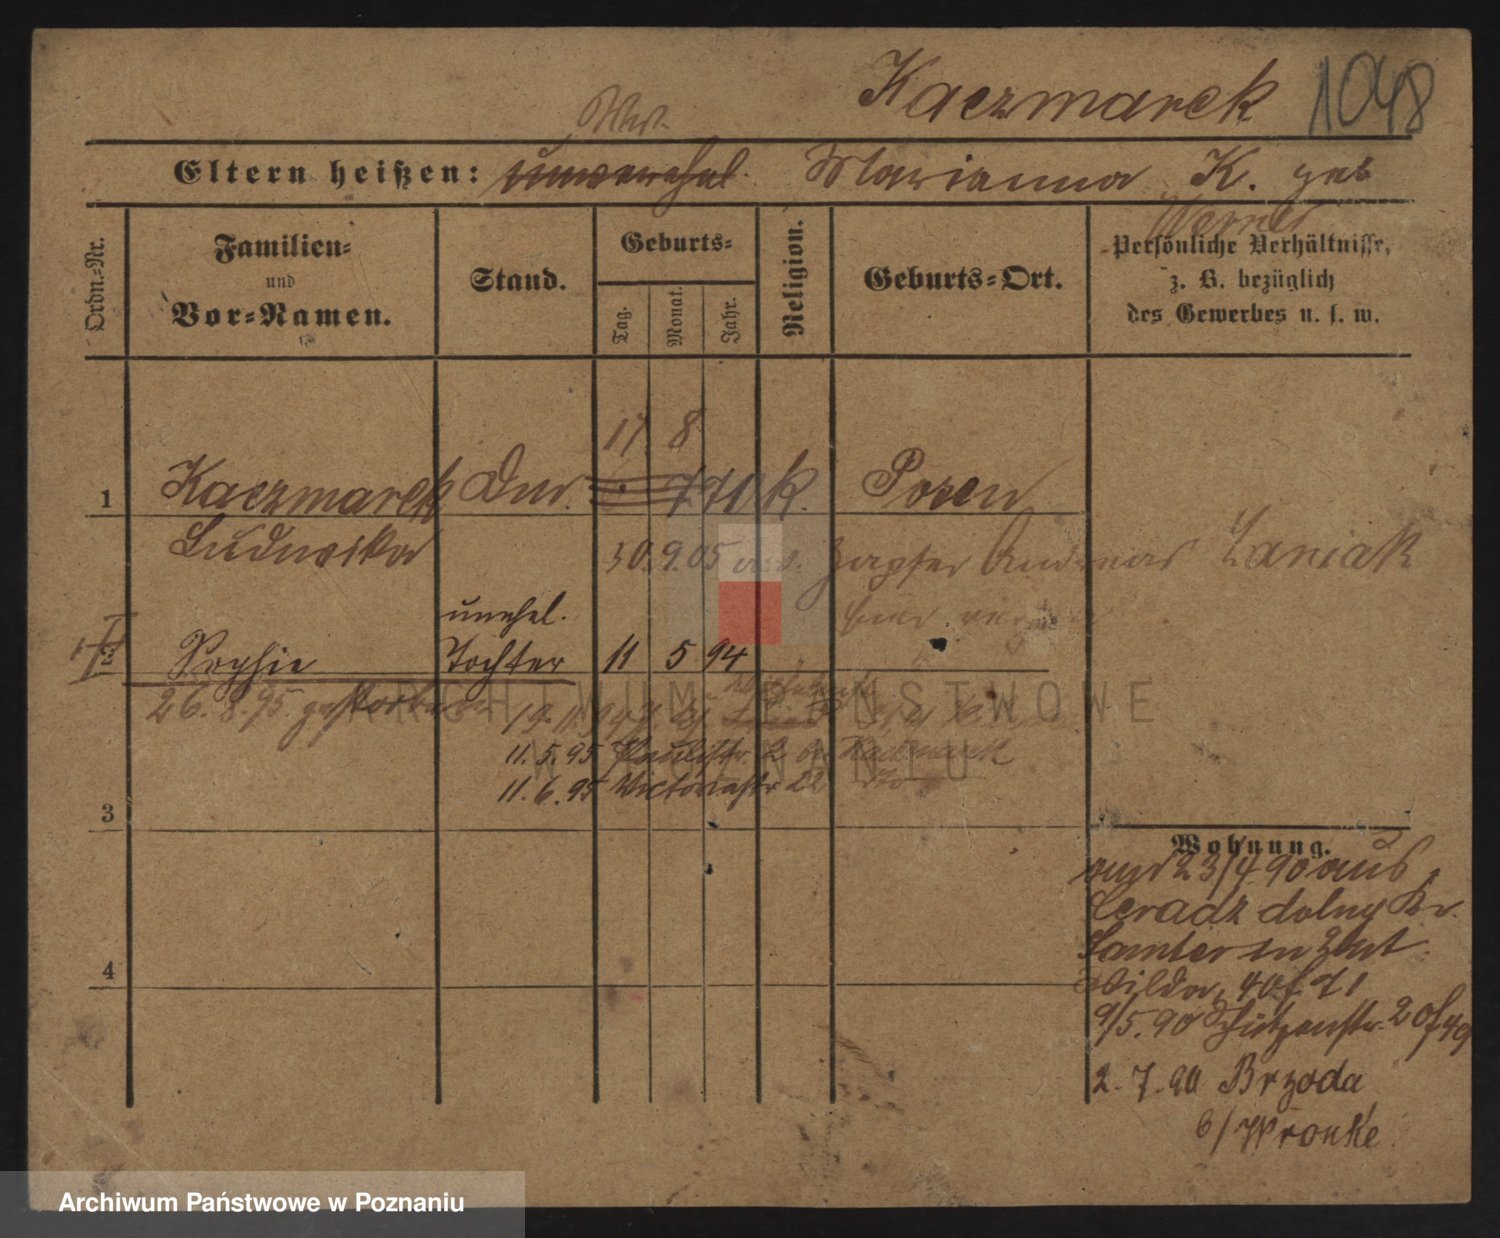 Kaczmarek 1048
Wwe.
Eltern heißen: unverehel. Marianna K. geb
Werner
Ordn.-Nr.
Familien-
und
Vor-Namen.
Stand.
Geburts-
Tag.
Monat.
Jahr.
Religion.
Geburts-Ort.
Persönliche Verhältnisse,
z. B. bezüglich
des Gewerbes u. s. w.
17 8
1 Kaczmarek k. Posen
Ludwika
30.9.05 Andreas Zaniak
unehel.
Sophie Tochter 11 5 94
26.8.95 gestorben
11.5.95 Paulistr. 2 Kaczmarek
11.6.95 Victoriastr 22 dto
3
Wohnung.
23/4 90 aus
Ceradz dolny Kr.
Samter
Wilda, 40
9/5.90 Schützenstr. 20
4
2.7.90 Brzoda
b/Wronke.
ARCHIWUM PAŃSTWOWE
W POZNANIU
Archiwum Państwowe w Poznaniu